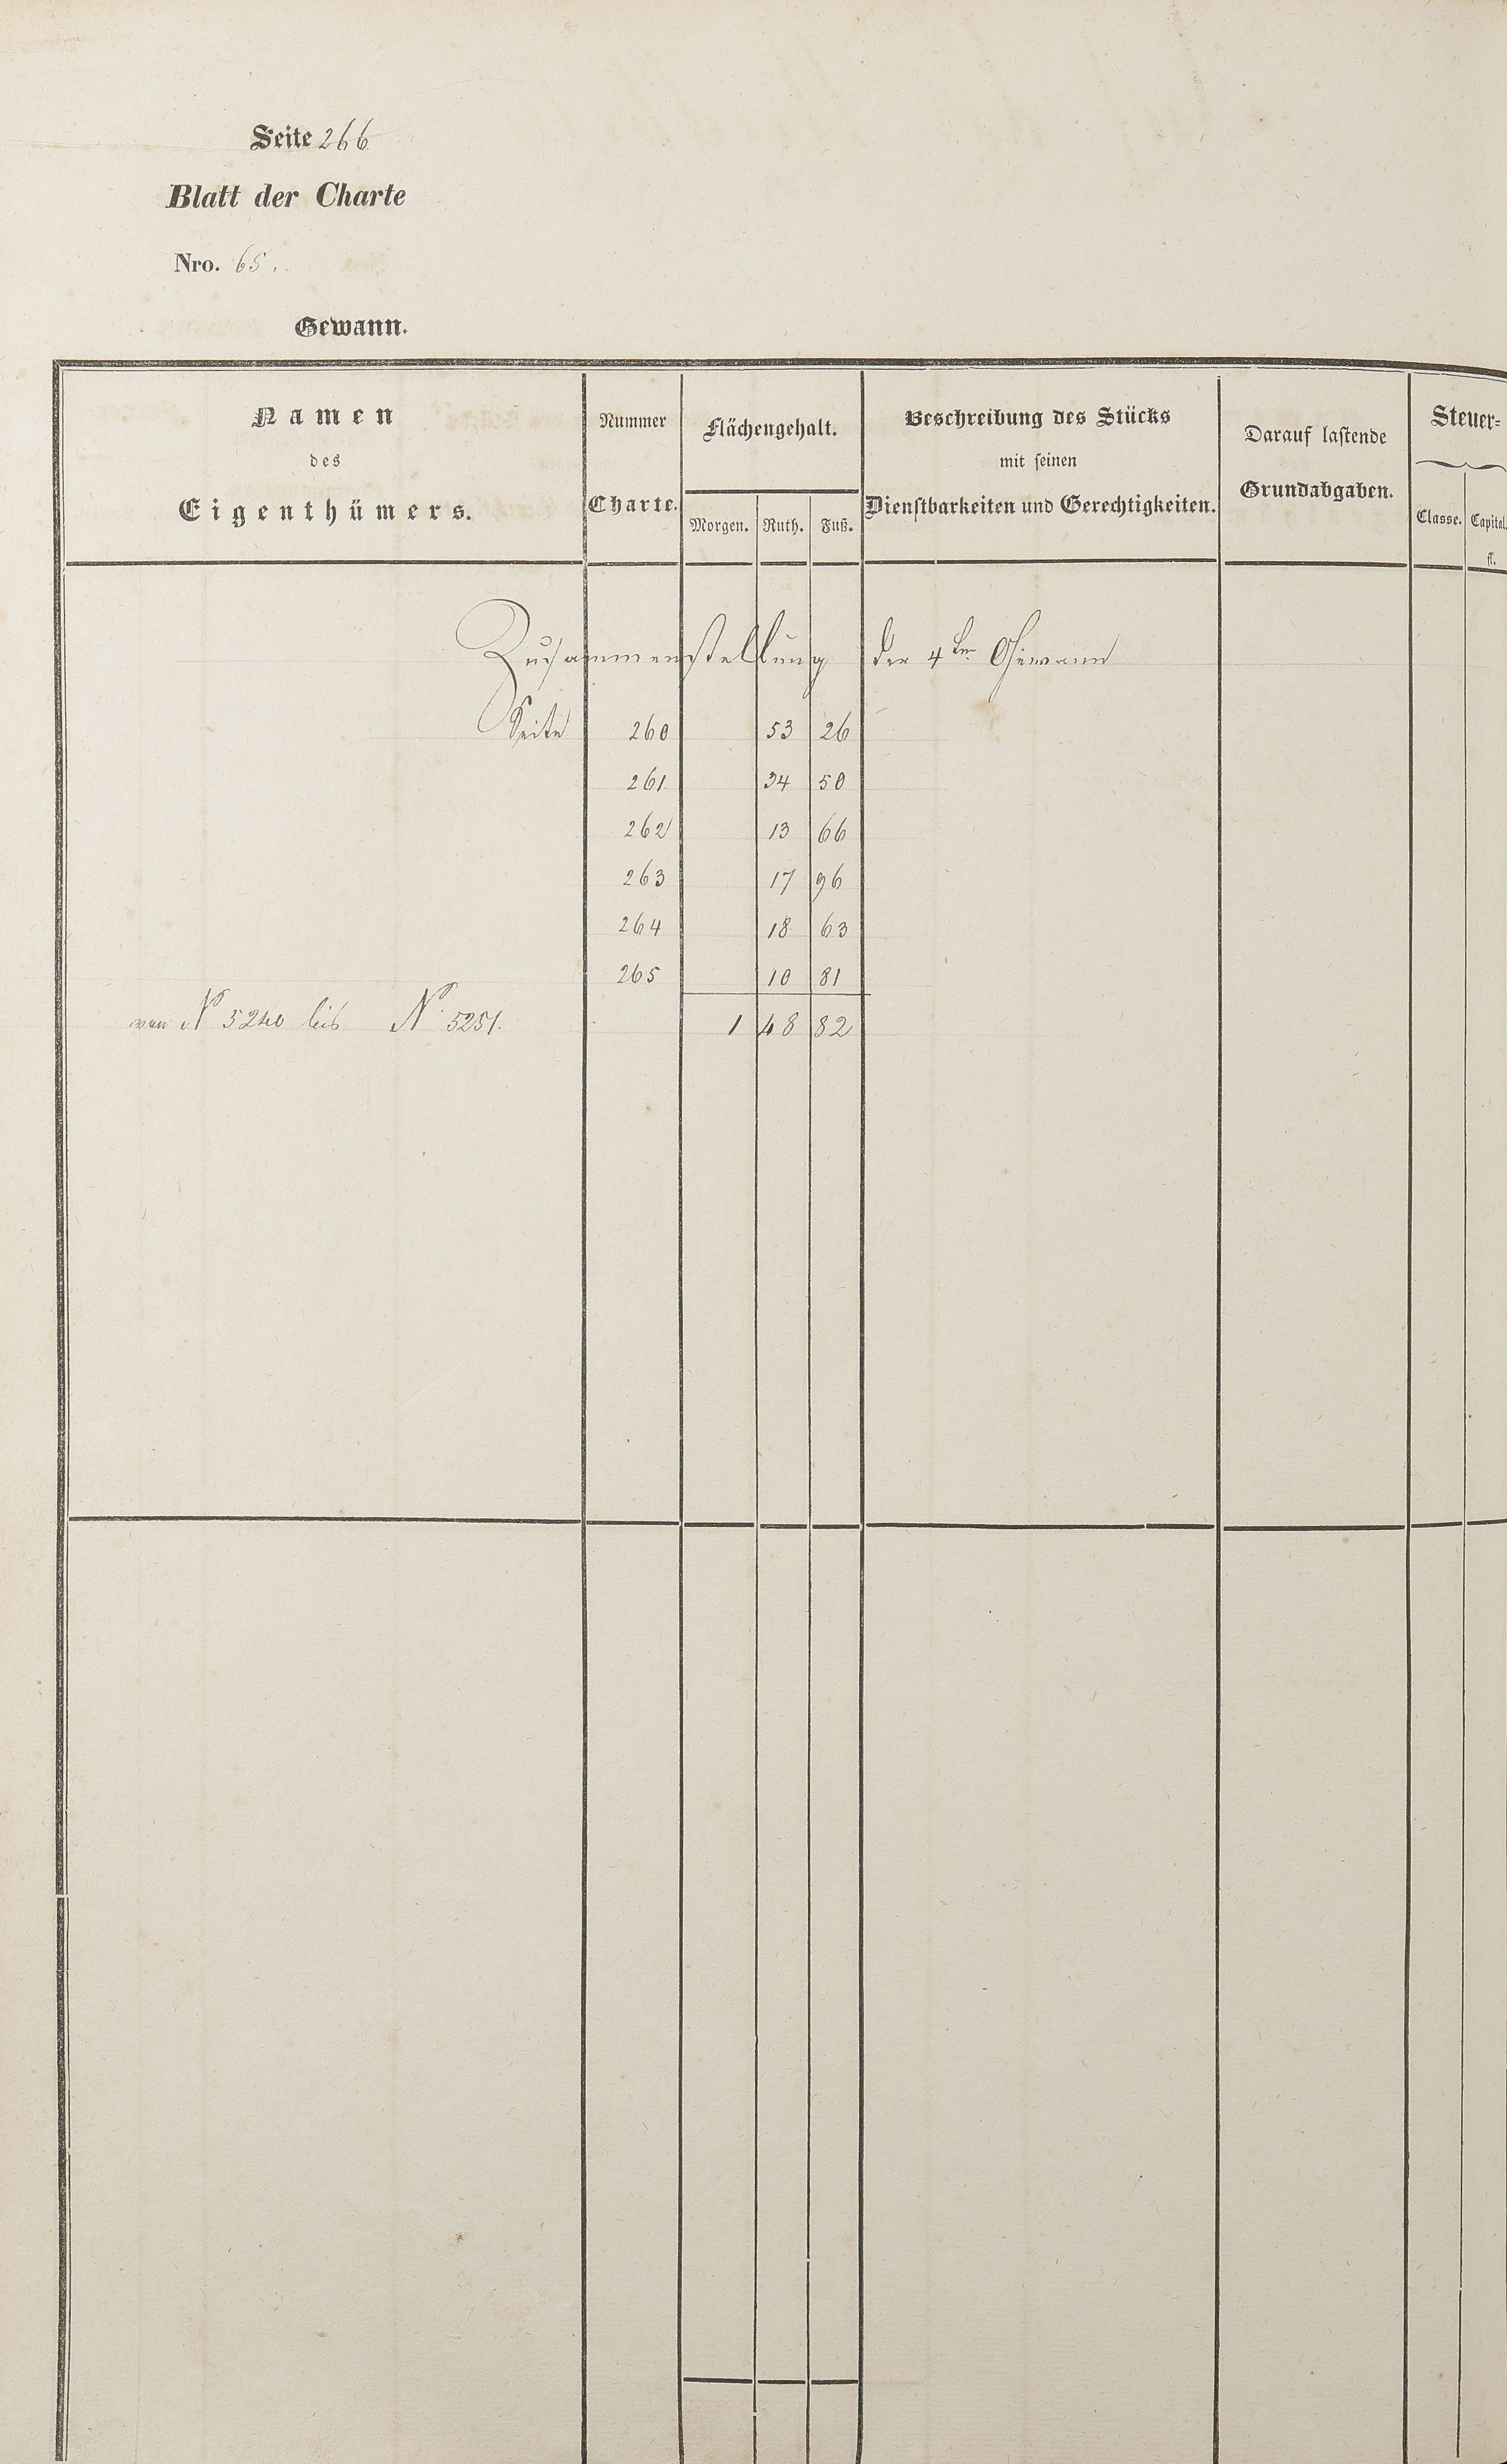 Seite 266
Blatt der Charte
Nro. 65.
Gewann.
Namen
des
Eigenthümers.
Nummer
Charte.
Flächengehalt.
Morgen. Ruth. Fuß.
Beschreibung des Stücks
mit seinen
Dienstbarkeiten und Gerechtigkeiten.
Darauf lastende
Grundabgaben.
Steuer=
Classe. Capital.
fl.
Zusammenstellung der 4ten Gewann
Seite 260 53 26
261 34 50
262 13 66
263 17 96
264 18 63
265 10 81
von No 5240 bis No 5251. 1 48 82